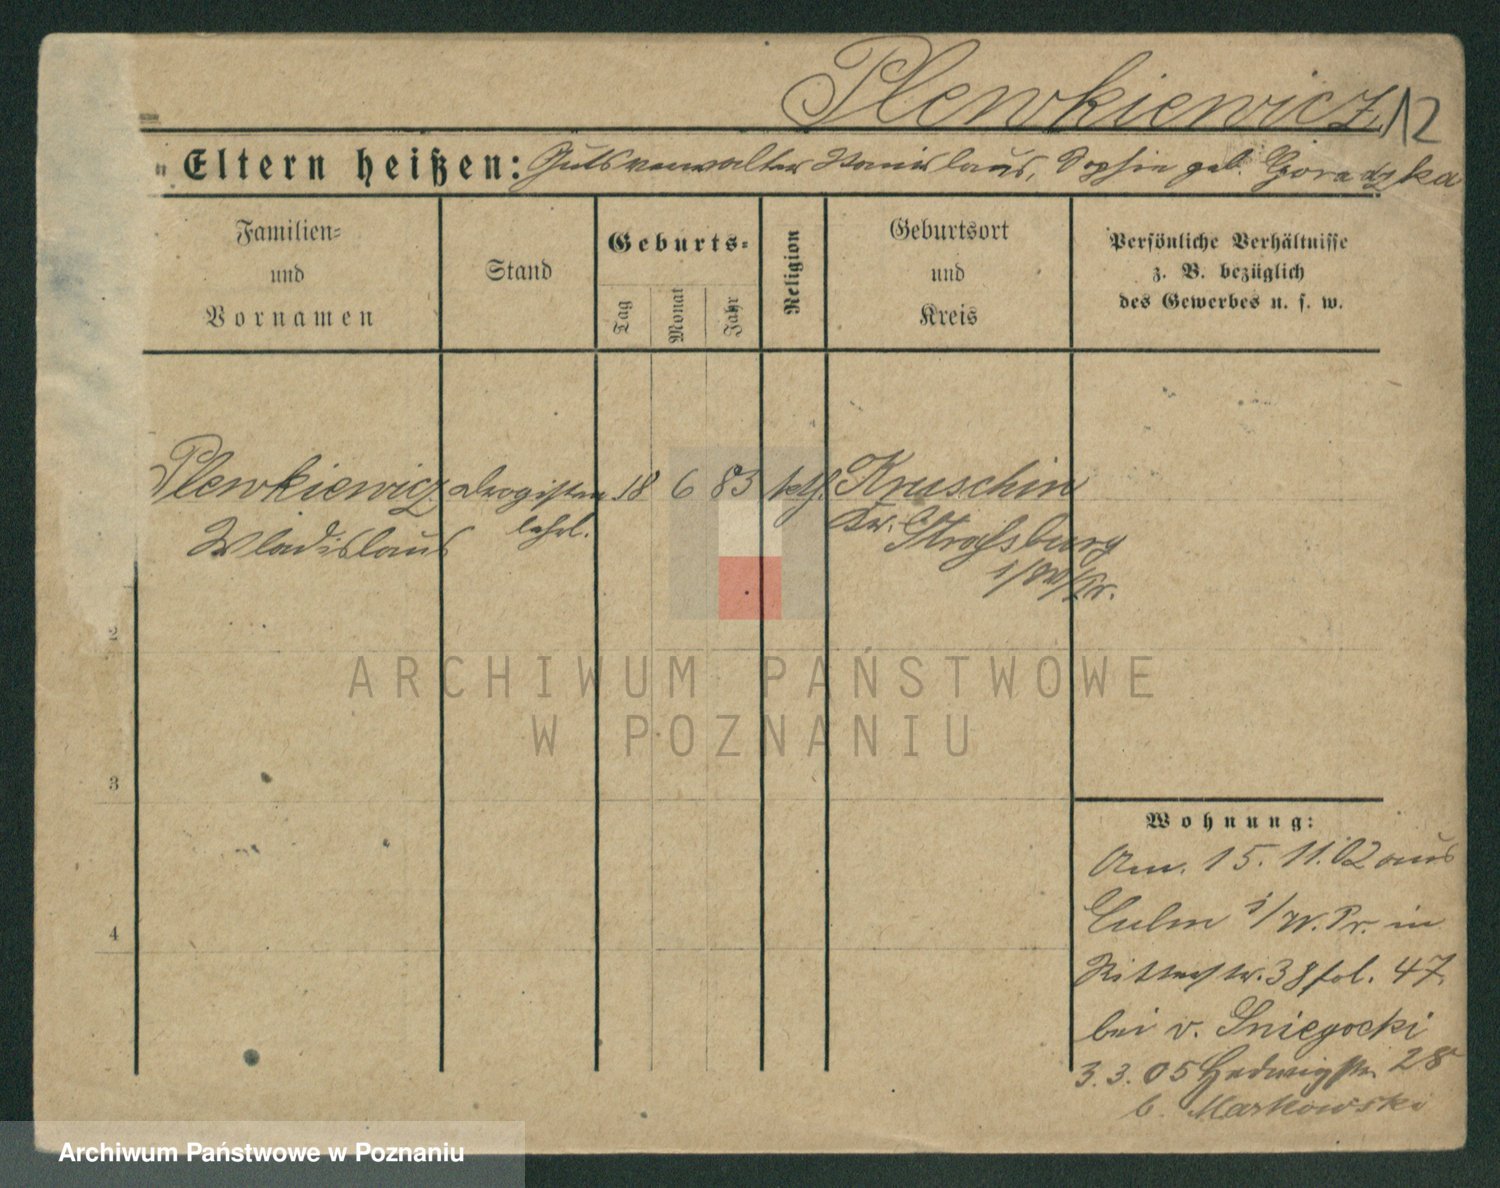 Plewkiewicz 12
Eltern heißen: Gutsverwalter Stanislaus, Sophie geb.
Familien-
und
Vornamen
Stand
Geburts-
Tag
Monat
Jahr
Religion
Geburtsort
und
Kreis
Persönliche Verhältnisse
z. B. bezüglich
des Gewerbes u. s. w.
Plewkiewicz Drogisten 18 6 83 kth. Kruschin
Wladislaus lehrl. Kr. Straßburg
i/W/Pr.
2
3
4
ARCHIWUM PAŃSTWOWE
W POZNANIU
Wohnung:
Am. 15. 11. 02 aus
Culm i/W. Pr. in
Ritterstr. 38 fol. 47.
bei v. Sniegocki
3. 3. 05 Hedwigstr. 28
b. Markowski
Archiwum Państwowe w Poznaniu